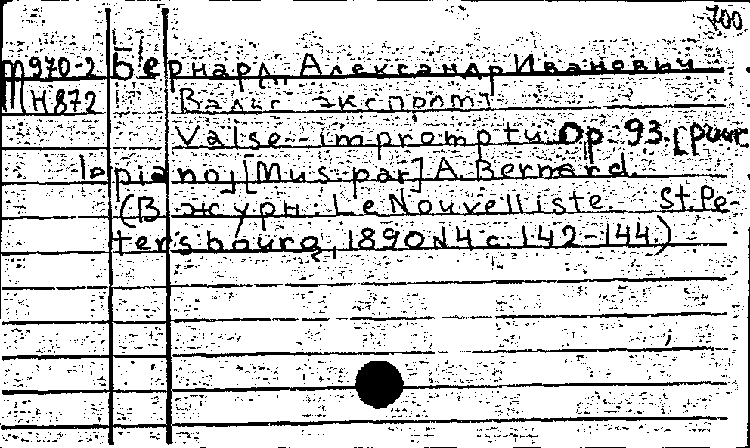 700
М970-2 Бернард, Александр Иванович
Н872 Вальс экспромт
Valse-impromptu. Op. 93. [pour
le piano] [Mus. par] A. Bernard.
(В журн.: Le Nouvelliste. St. Pe-
tersbourg, 1890 N4 с. 142-144.)